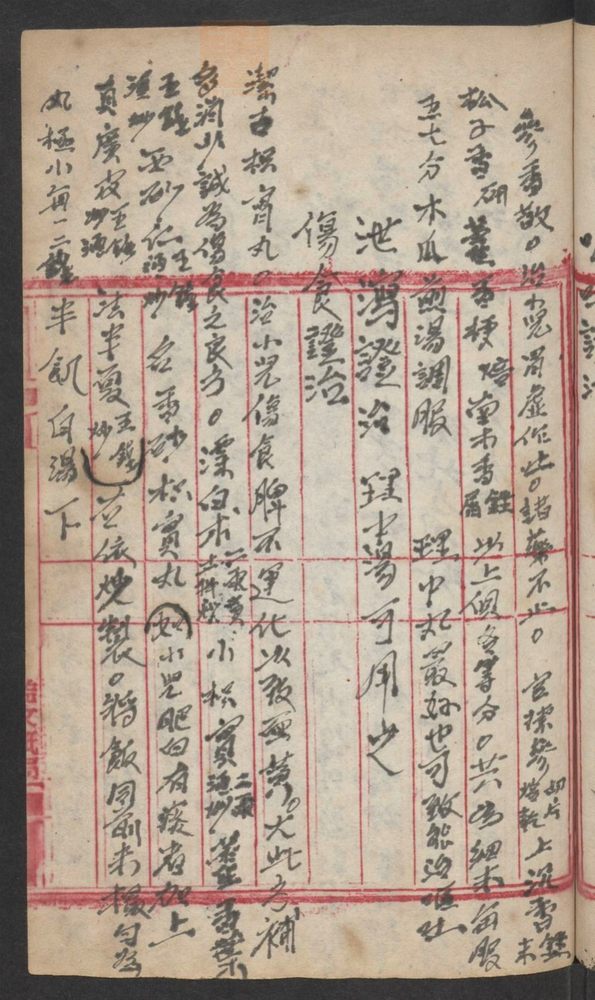 參香散。治小兒胃虛作吐。諸藥不止。官揀參切片焙乾上沉香末
松子香研藿香梗焙南木香屑以上個各等分。共為細末每服
五七分木瓜煎湯調服 理中丸最妙也可致能治嘔吐
泄瀉證治 理中湯可用之
傷食證治
潔古枳實丸。治小兒傷食脾不運化以致面黃。尤此方補
多消少誠為傷食之良方。漂白朮二兩土拌炒小枳實二兩酒炒藿香葉
五錢酒炒西砂仁五錢酒炒名香砂枳實丸如小兒肥白有痰者加上
真廣皮五錢酒炒法半夏五錢炒並依炒製。將飯同前末糊勻為
丸極小每一二錢半飢白湯下